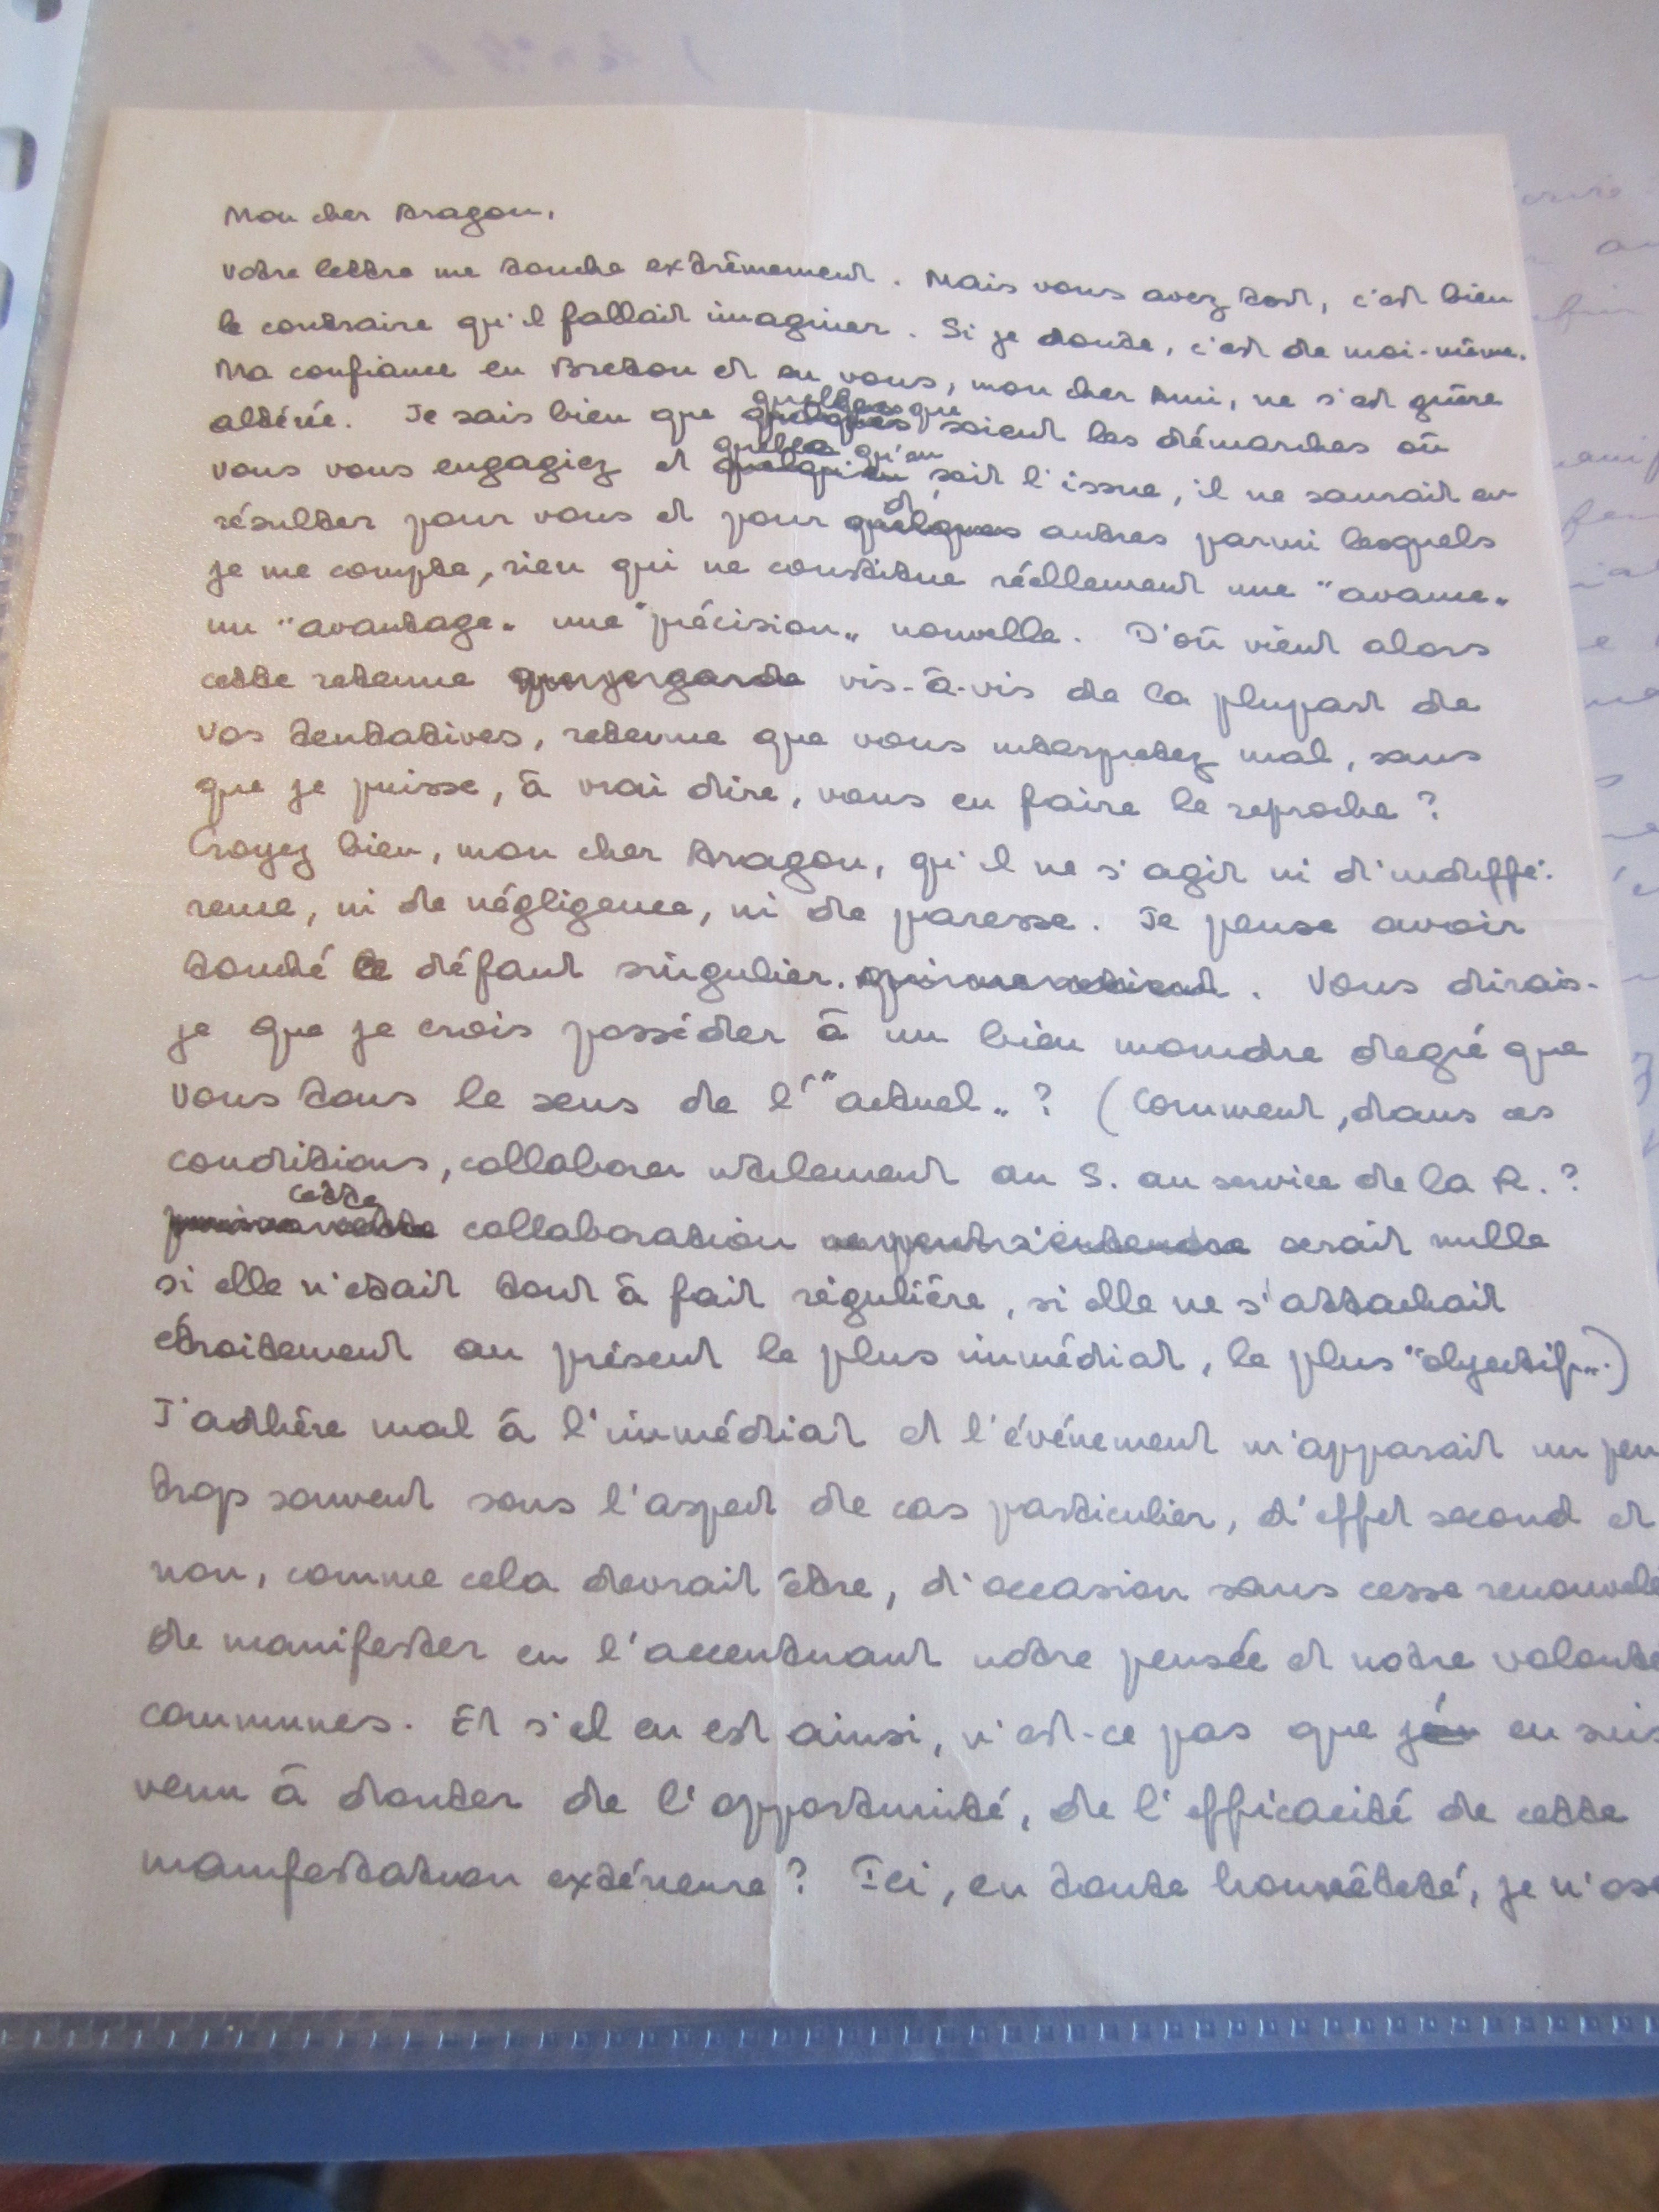 Mon cher Aragon,
Votre lettre me touche extrêmement. Mais vous avez tort, c'est bien
le contraire qu'il fallait imaginer. Si je doute, c'est de moi-même.
Ma confiance en Breton et en vous, mon cher Ami, ne s'est guère
altérée. Je sais bien que quelles que soient les démarches où
vous vous engagiez et quelle qu'en soit l'issue, il ne saurait en
résulter pour vous et pour d' autres parmi lesquels
je me compte, rien qui ne constitue réellement une "avance"
un "avantage" une "précision" nouvelle. D'où vient alors
cette retenue que je garde vis-à-vis de la plupart de
vos tentatives, retenue que vous interpretez mal, sans
que je puisse, à vrai dire, vous en faire le reproche?
Croyez bien, mon cher Aragon, qu'il ne s'agit ni d'indiffé-
rence, ni de négligence, ni de paresse. Je pense avoir
touché le défaut singulier. qui me retient. Vous dirais-
je que je crois posséder à un bien moindre degré que
vous tous le sens de l'"actuel"? (Comment, dans ces
conditions, collaborer utilement au S. au service de la R.?
cette collaboration ne peut s'entendre serait nulle
si elle n'etait tout à fait régulière, si elle ne s'attachait
étroitement au présent le plus immédiat, le plus "objectif".)
J'adhère mal à l'immédiat et l'événement m'apparait un peu
trop souvent sous l'aspect de cas particulier, d'effet second et
non, comme cela devrait être, d'occasion sans cesse renouvelé
de manifester en l'accentuant notre pensée et notre volonté
communes. Et s'il en est ainsi, n'est-ce pas que j'en en suis
venu à douter de l'opportunité, de l'efficacité de cette
manifestation extérieure? Ici, en toute honnêteté, je n'ose